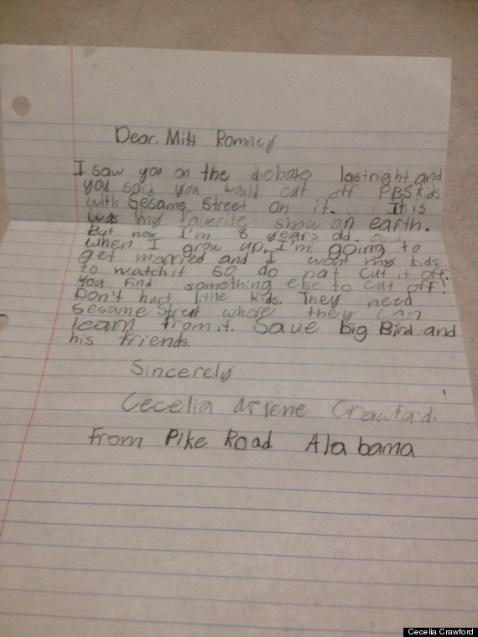 Dear. Mitt Romney
I saw you on the debate lastnight and
you said you would cut off PBS kids
with Sesame Street on it.... It is
was my faverite show on earth.
But now I'm 8 years old.
when I grow up. I'm going to
get married and I want my kids
to watch it so do not cut it off.
You find something else to cut off!
Don't hurt little kids. They need
Sesame Street where they can
learn from it. Save Big Bird and
his friends.
Sincerely
Cecelia Arlene Crawford.
From Pike Road Alabama
Cecelia Crawford